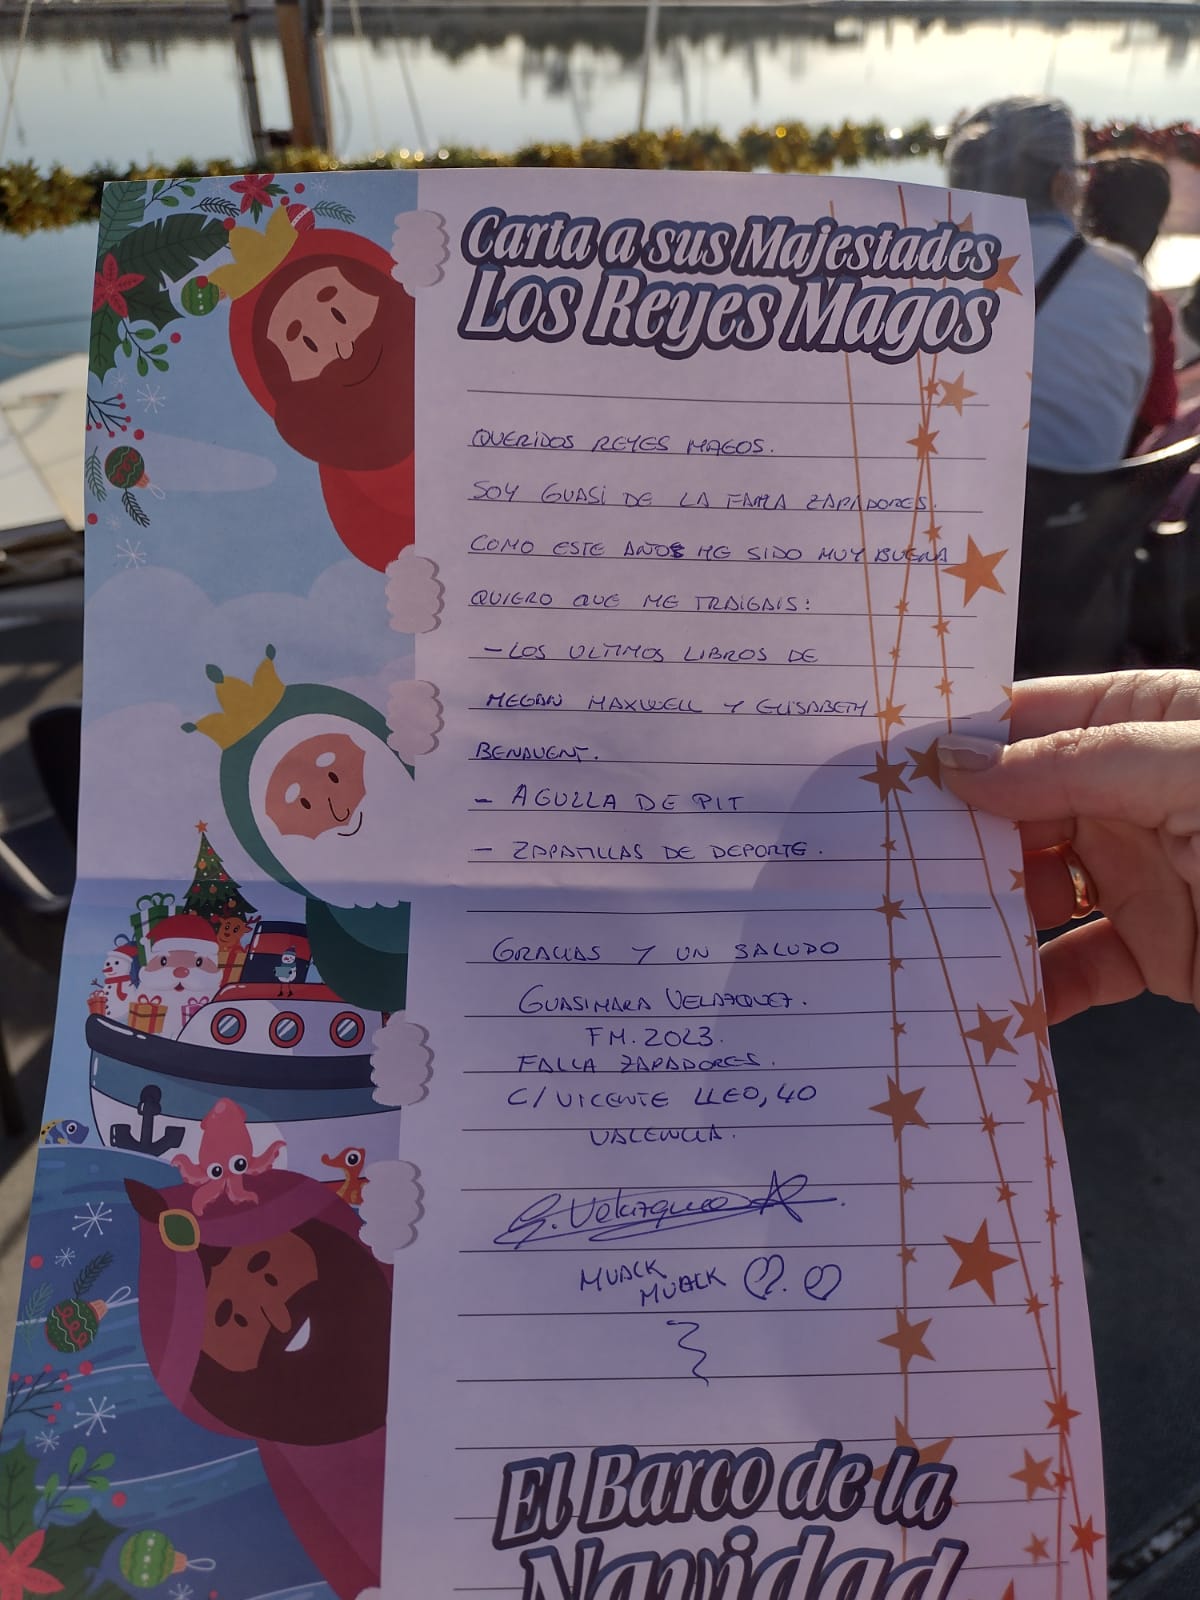 Carta a sus Majestades
Los Reyes Magos
QUERIDOS REYES MAGOS.
SOY GUASI DE LA FALLA ZAPADORES.
COMO ESTE AÑO HE SIDO MUY BUENA
QUIERO QUE ME TRAIGAIS:
- LOS ULTIMOS LIBROS DE
MEGAN MAXWELL Y ELISABETH
BENAVENT.
- AGUJA DE PIT
- ZAPATILLAS DE DEPORTE.
GRACIAS Y UN SALUDO
GUASIMARA VELAZQUEZ.
FM. 2023.
FALLA ZAPADORES.
C/ VICENTE LLEO, 40
VALENCIA.
G. Velazquez
MUACK
MUACK
El Barco de la
Navidad